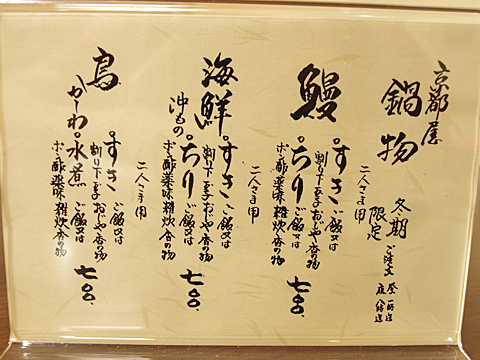 京都屋
鍋物
冬期限定
ご注文 昼一時迄
夜八時迄
二人さま用
鰻
すき ご飯又は
割り下玉子おじや香の物
ちり ご飯又は
ポン酢薬味雑炊香の物
二人さま用
海鮮
沖もの
すき ご飯又は
割り下玉子おじや香の物
ちり ご飯又は
ポン酢薬味雑炊香の物
二人さま用
鳥
かしわ
すき ご飯又は
割り下玉子おじや香の物
水煮 ご飯又は
ポン酢薬味雑炊香の物